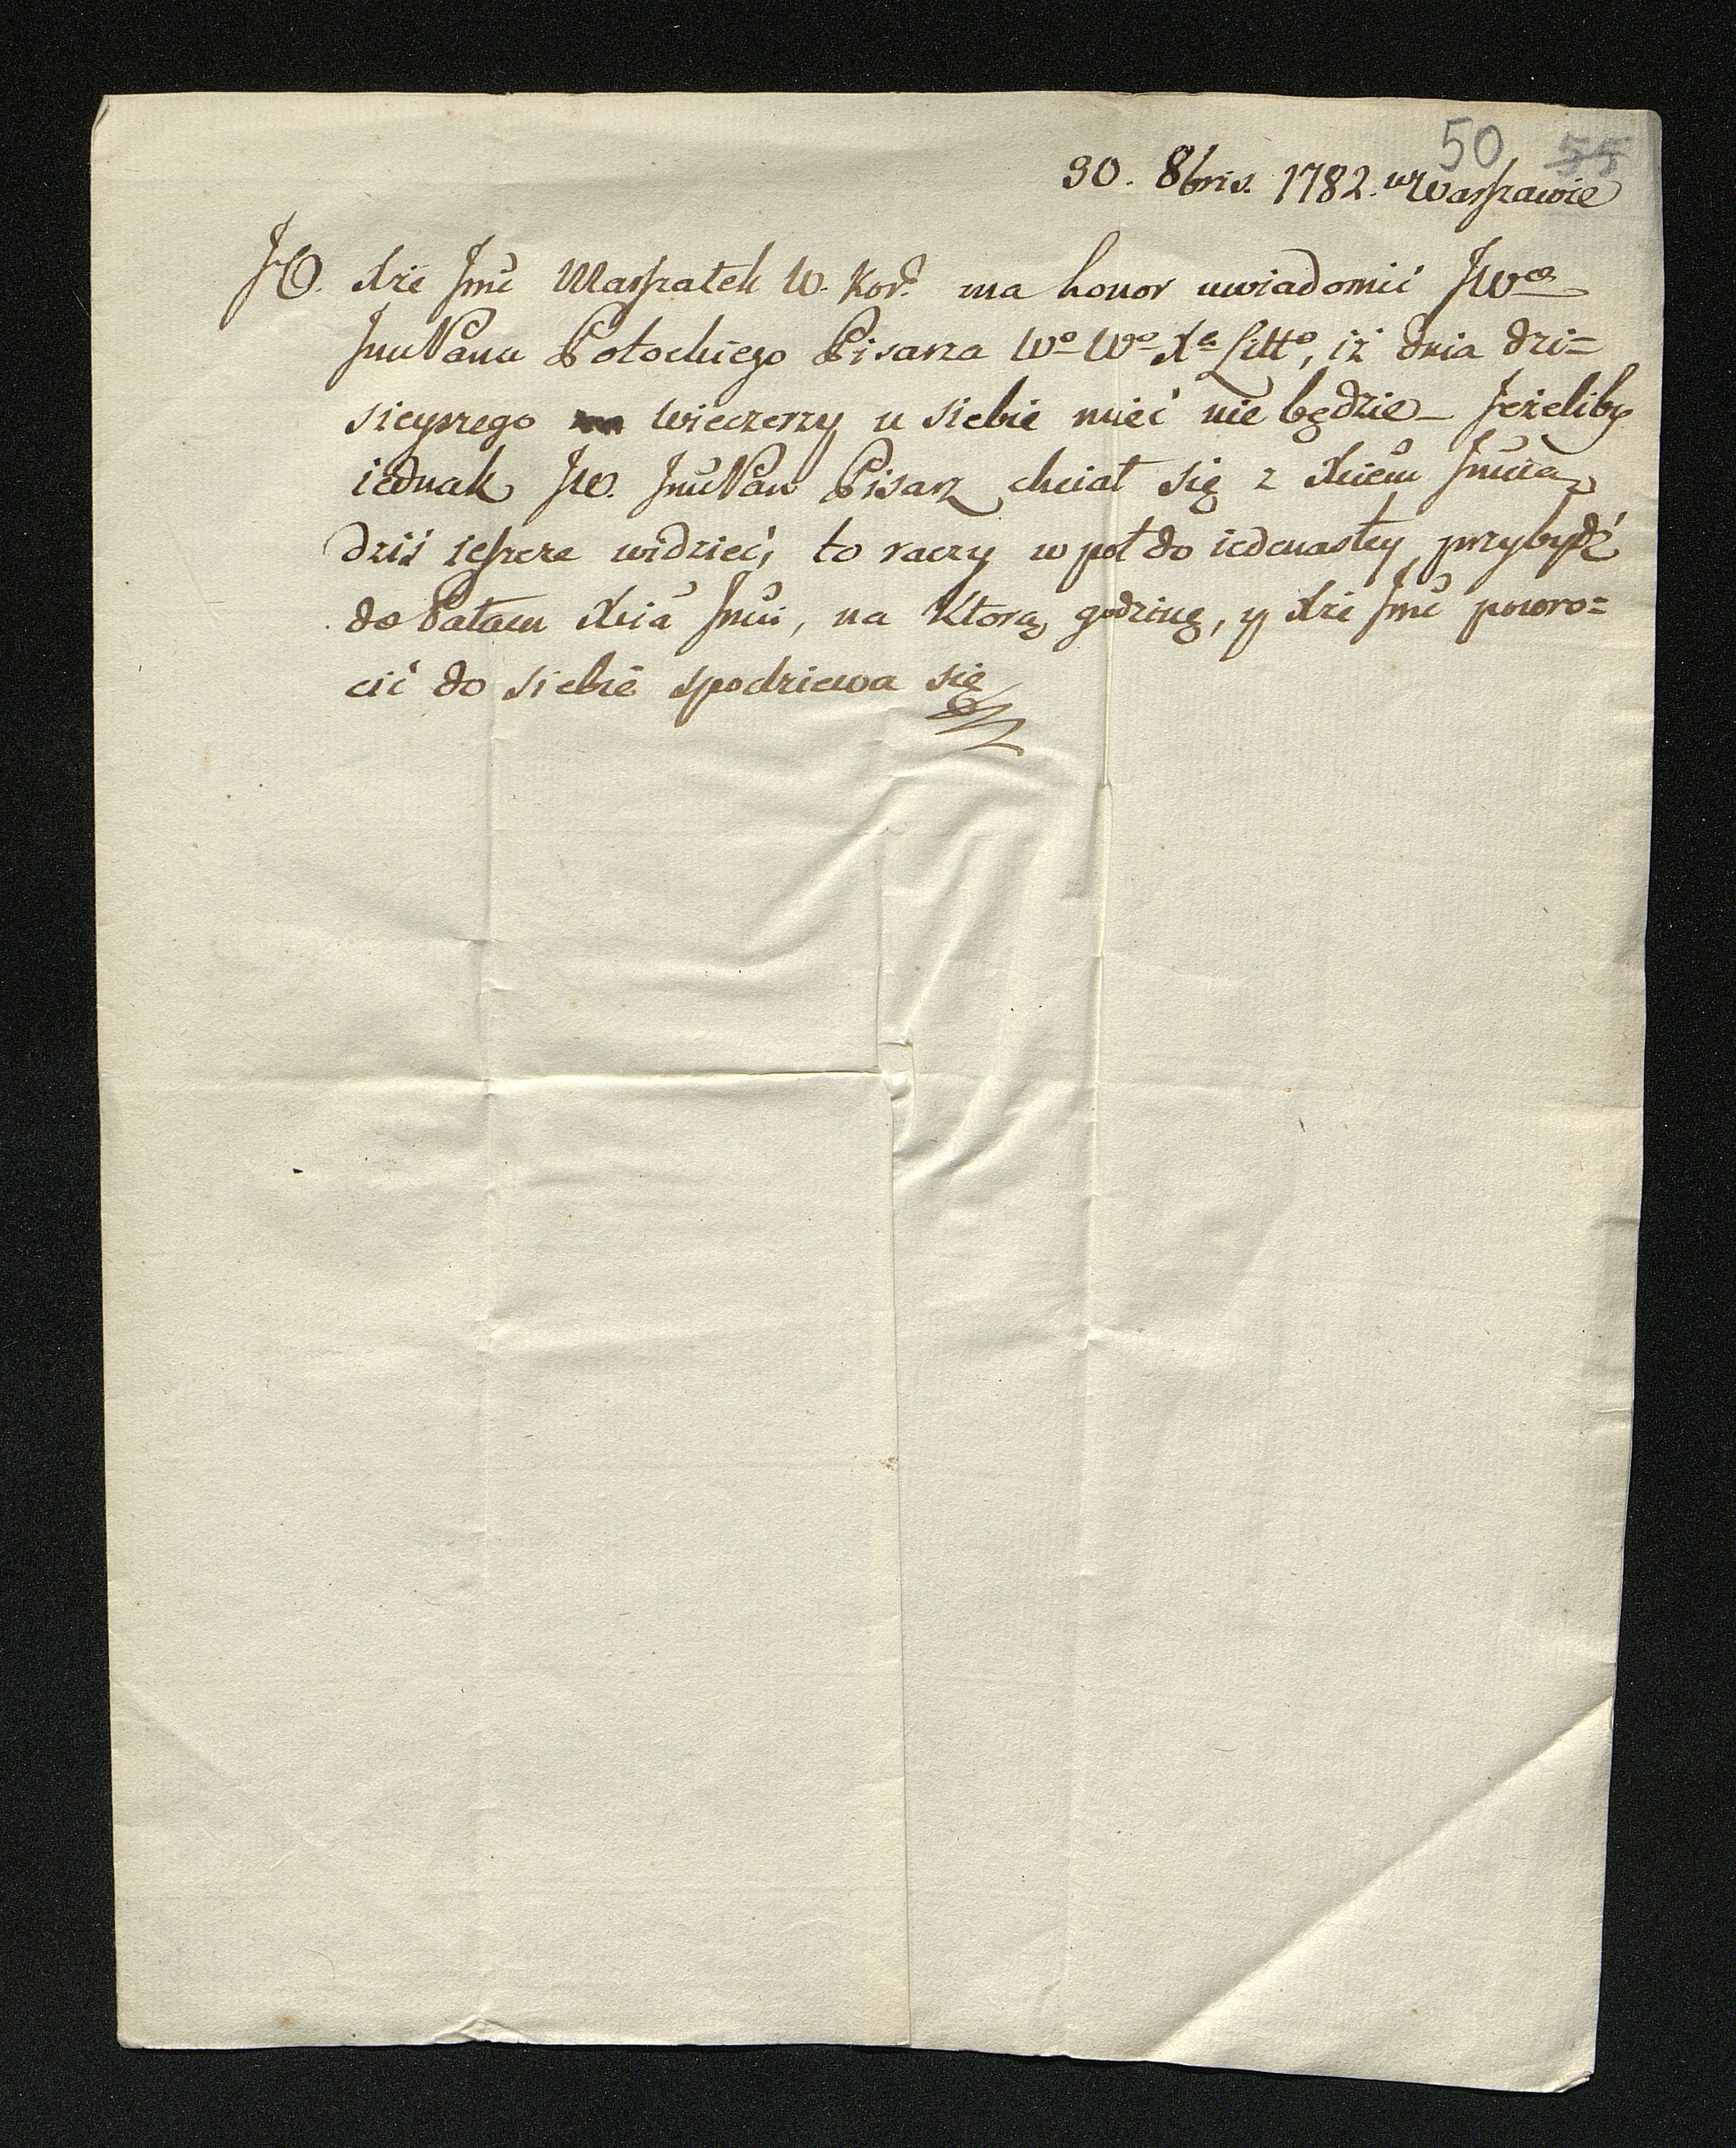 50 55
30. 8bris. 1782. w Warszawie
JO. Xże Jmć Marszałek W. Kor: ma honor uwiadomić JWo
JmćPana Potockiego Pisarza Wo Wo Xa Litto, iż dnia dzi=
sieyszego wieczerzy u siebie mieć nie będzie_ Jeżeliby
iednak JW. JmćPan Pisarz chciał się z Xciem Jmcią
dziś ieszcze widzieć, to raczy w poł do iedenastey przybydź
do Pałacu Xcia Jmci, na ktorą godzinę, y Xże Jmć powro=
cić do siebie spodziewa się